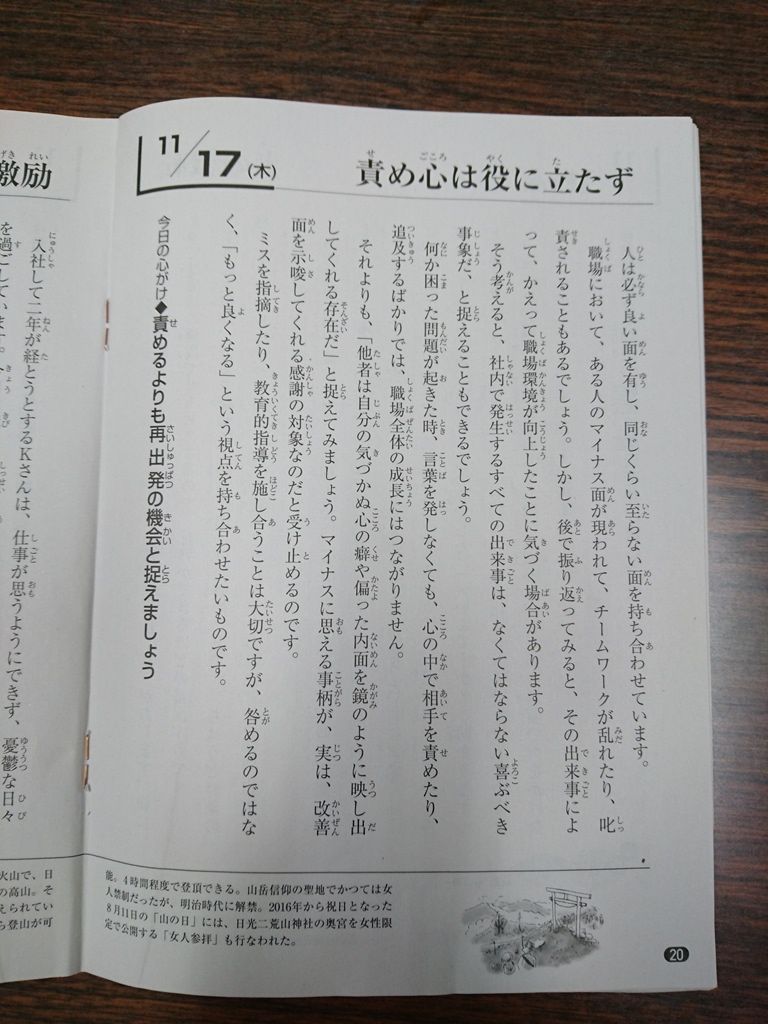 11/17(木)
責め心は役に立たず
人は必ず良い面を有し、同じくらい至らない面を持ち合わせています。
職場において、ある人のマイナス面が現われて、チームワークが乱れたり、叱
責されることもあるでしょう。しかし、後で振り返ってみると、その出来事によ
って、かえって職場環境が向上したことに気づく場合があります。
そう考えると、社内で発生するすべての出来事は、なくてはならない喜ぶべき
事象だ、と捉えることもできるでしょう。
何か困った問題が起きた時、言葉を発しなくても、心の中で相手を責めたり、
追及するばかりでは、職場全体の成長にはつながりません。
それよりも、「他者は自分の気づかぬ心の癖や偏った内面を鏡のように映し出
してくれる存在だ」と捉えてみましょう。マイナスに思える事柄が、実は、改善
面を示唆してくれる感謝の対象なのだと受け止めるのです。
ミスを指摘したり、教育的指導を施し合うことは大切ですが、咎めるのではな
く、「もっと良くなる」という視点を持ち合わせたいものです。
今日の心がけ◆責めるよりも再出発の機会と捉えましょう
能。4時間程度で登頂できる。山岳信仰の聖地でかつては女
人禁制だったが、明治時代に解禁。2016年から祝日となった
8月11日の「山の日」には、日光二荒山神社の奥宮を女性限
定で公開する「女人参拝」も行なわれた。
20
激励
入社して二年が経とうとするKさんは、仕事が思うようにできず、憂鬱な日々
を過ごしています。
火山で、日
の高山。そ
えられてい
ら登山が可